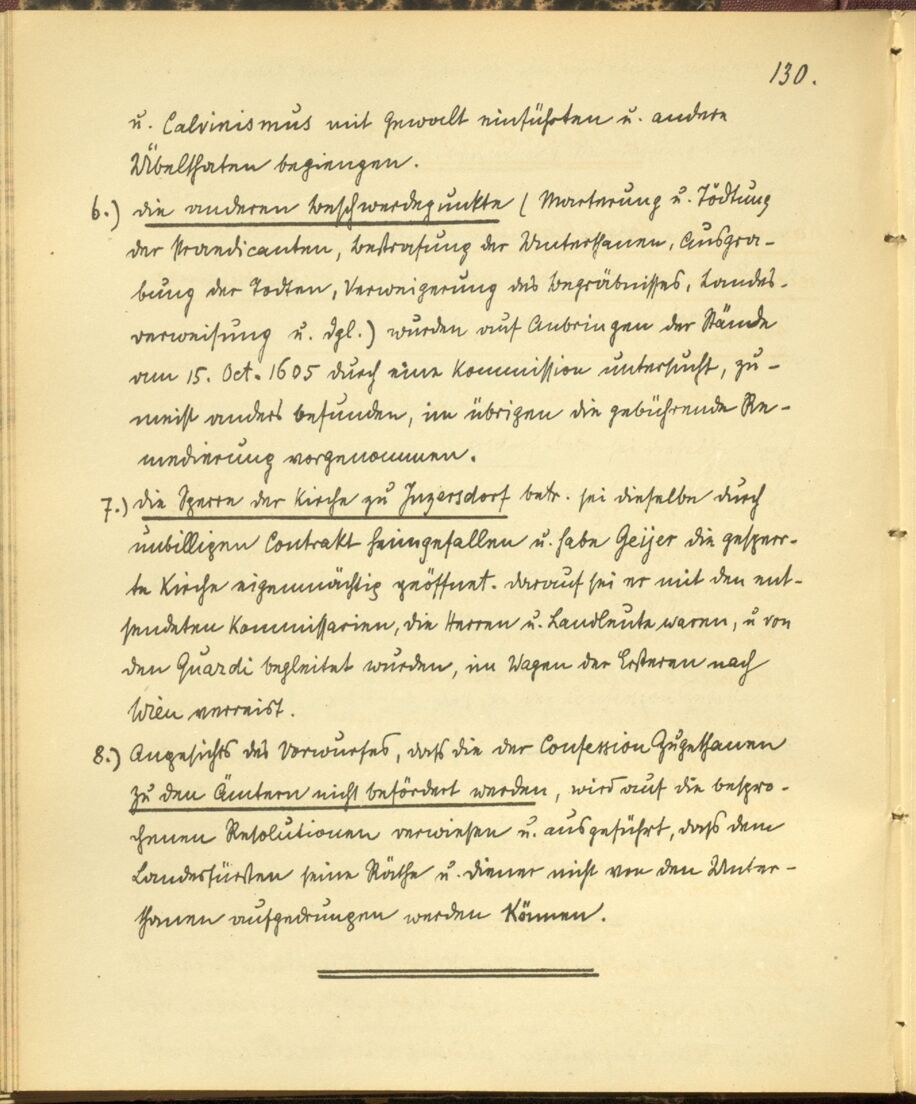 130.
u. Calvinismus mit Gewalt einführten u. andere
Übelthaten begiengen.
6.) die anderen Beschwerdepunkte (Marterung u. Tödtung
der Praedicanten, Bestrafung der Unterthanen, Ausgra-
bung der Todten, Verweigerung des Begräbnisses, Landes-
verweisung u. dgl.) wurden auf Anbringen der Stände
am 15. Oct. 1605 durch eine Kommission untersucht, zu-
meist anders befunden, im übrigen die gebührende Re-
medierung vorgenommen.
7.) die Sperre der Kirche zu Inzersdorf betr. sei dieselbe durch
unbilligen Contrakt heimgefallen u. habe Geijer die gesperr-
te Kirche eigenmächtig geöffnet. darauf sei er mit den ent-
sendeten Kommissarien, die Herren u. Landleute waren, u von
den Guardi begleitet wurden, im Wagen der Ersteren nach
Wien verreist.
8.) Angesichts des Vorwurfes, dass die der Confession Zugethanen
zu den Ämtern nicht befördert werden, wird auf die bespro-
chenen Resolutionen verwiesen u. ausgeführt, dass dem
Landesfürsten seine Räthe u. diener nicht von den Unter-
thanen aufgedrungen werden Können.